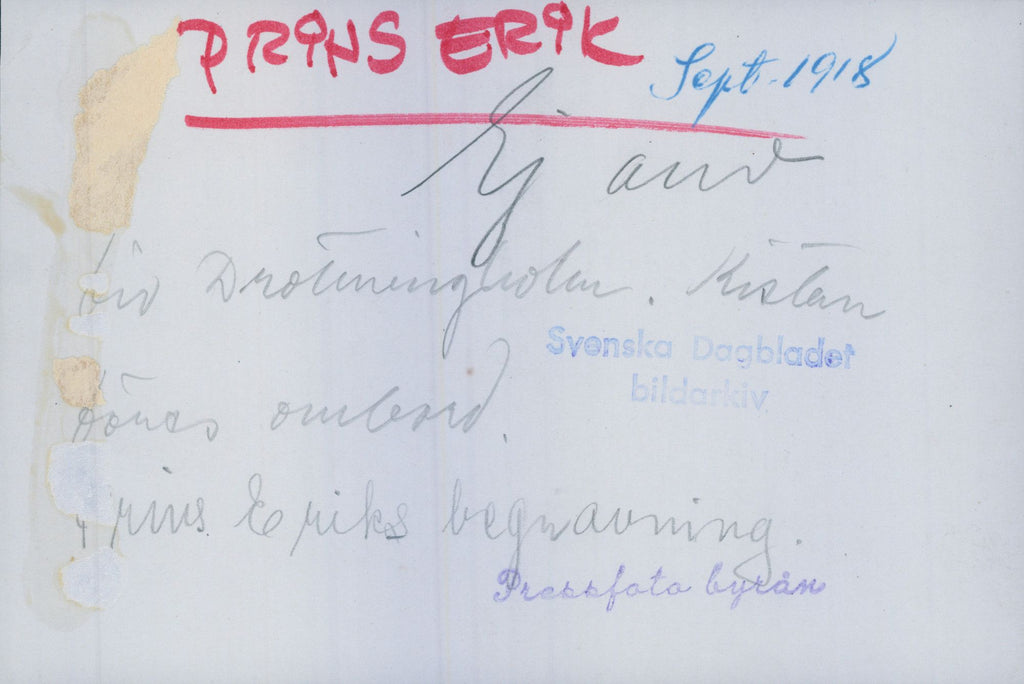 PRINS ERIK
Sept. 1918
Ej anv
vid Drottningholm. Kistan
föres ombord.
Prins Eriks begravning.
Svenska Dagbladet
bildarkiv
Pressfoto byrån